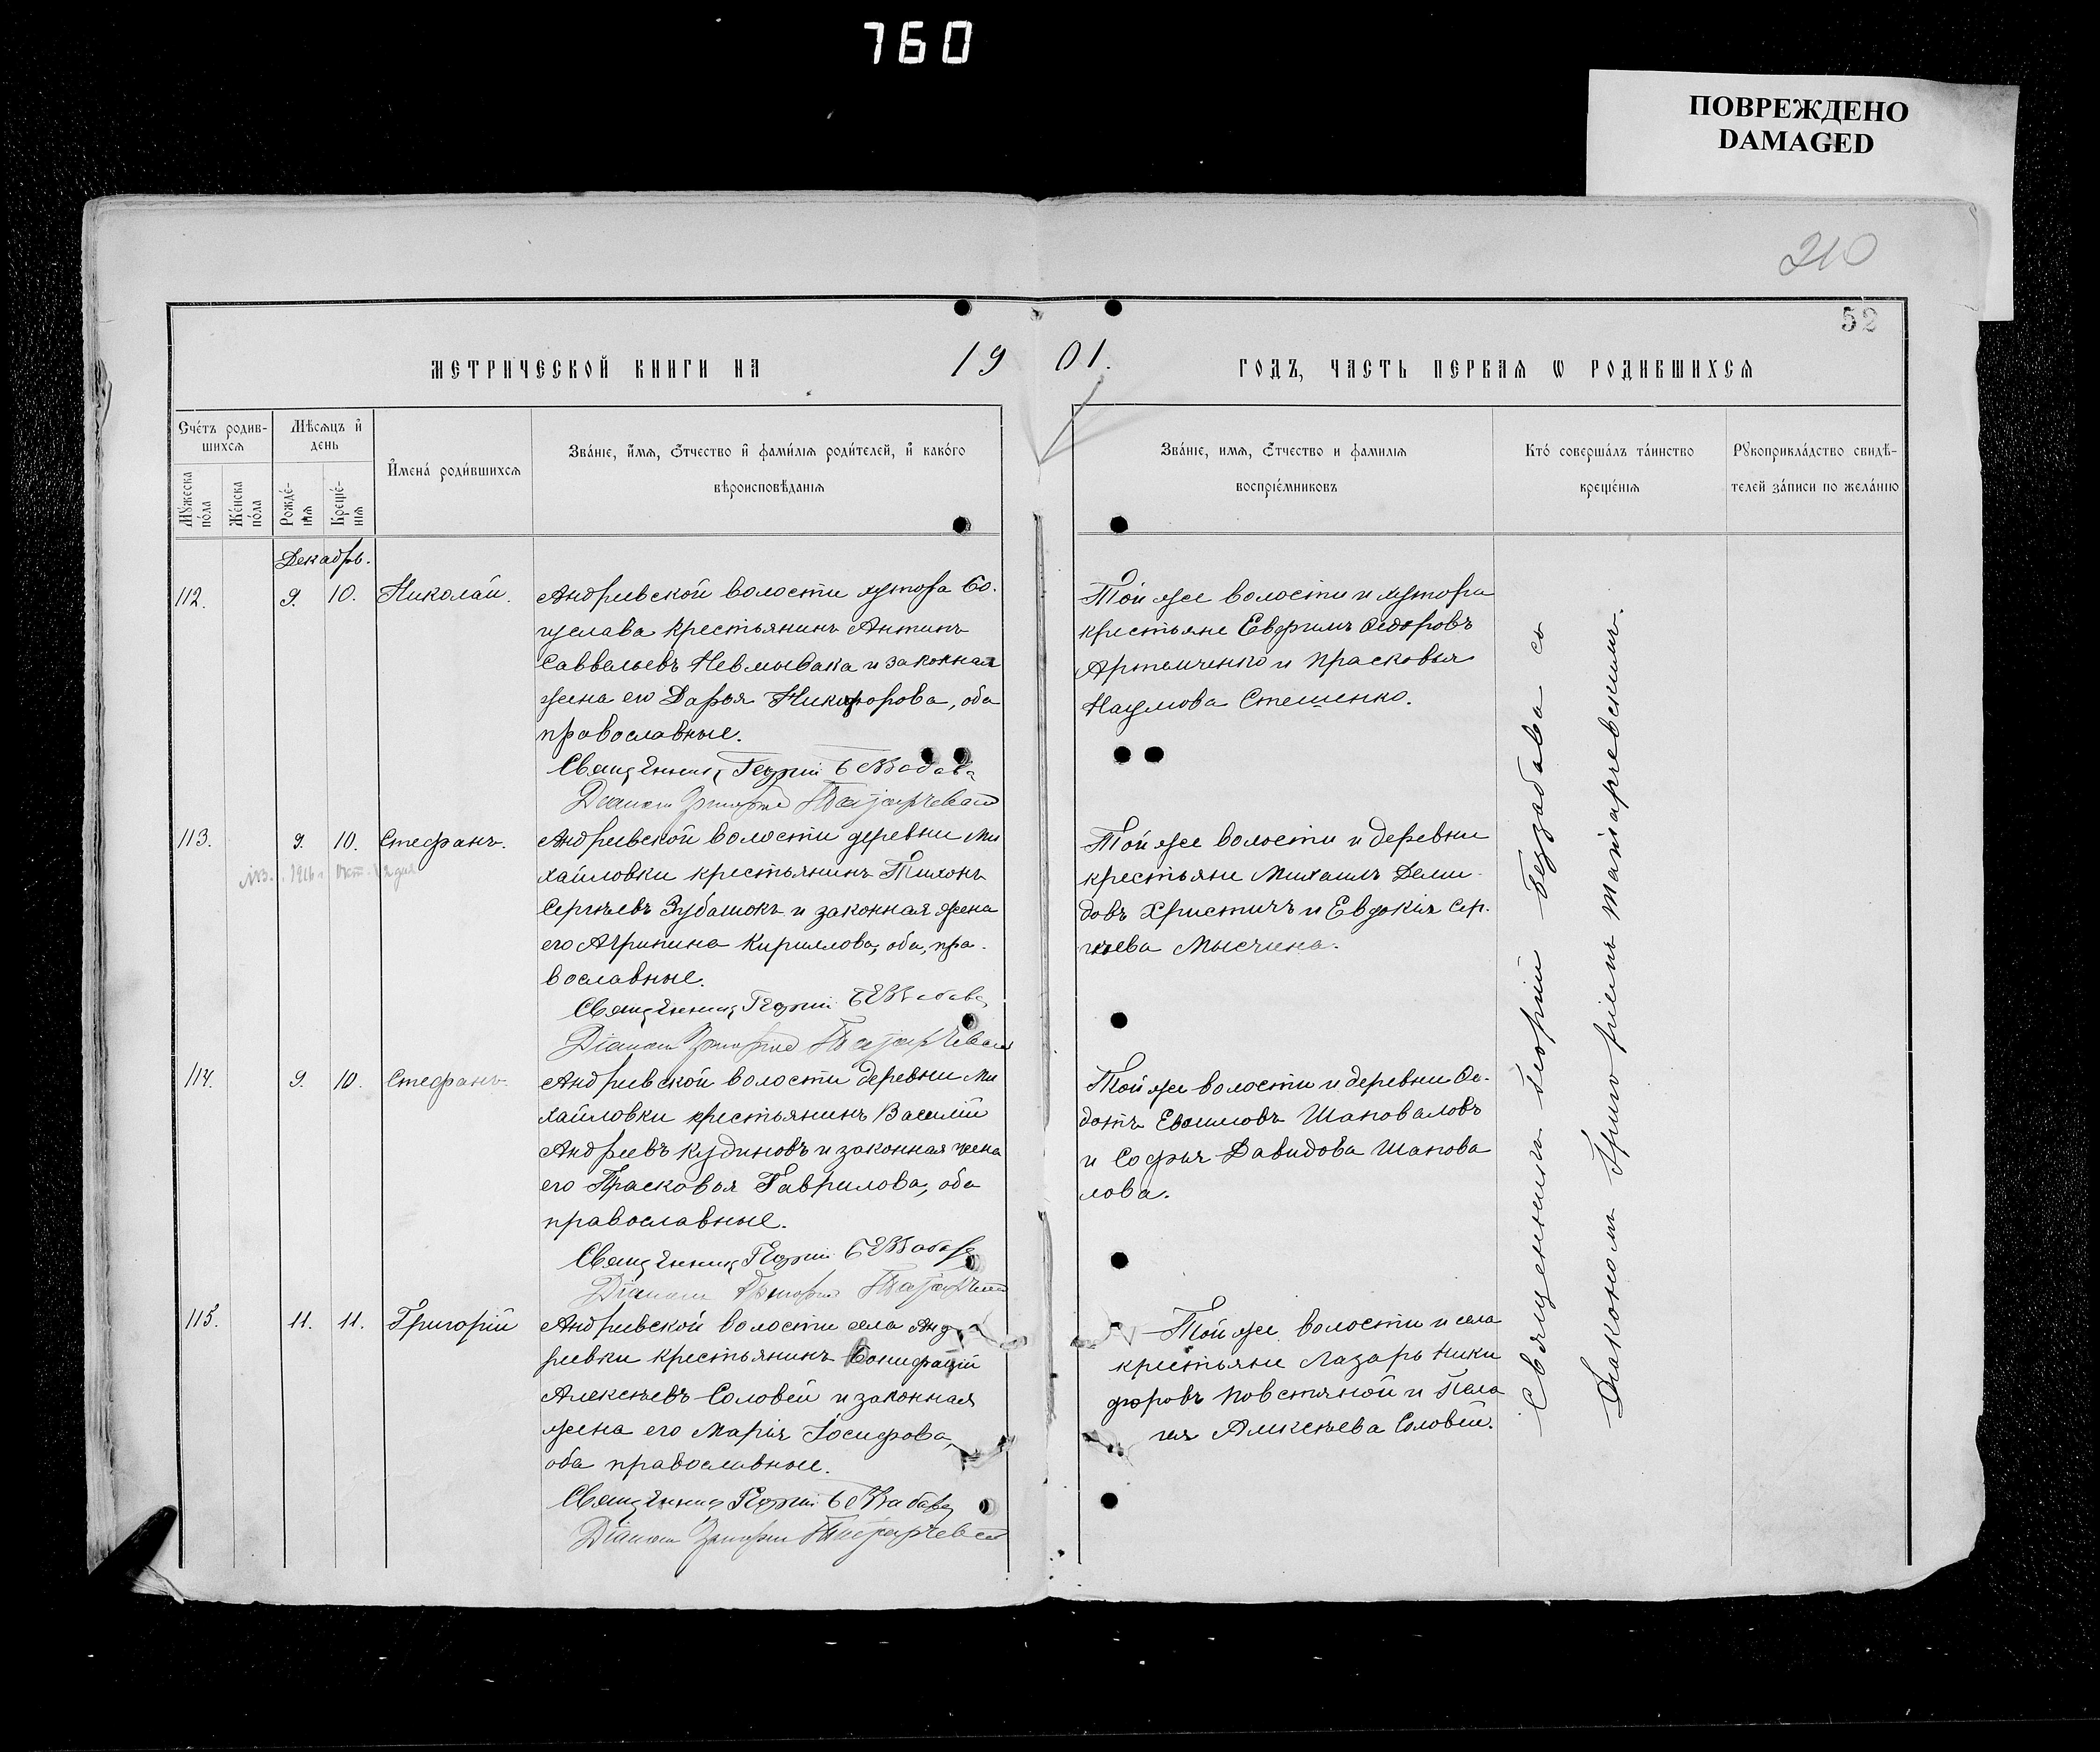 760
ПОВРЕЖДЕНО
DAMAGED
210
52
МЕТРИЧЕСКОЙ КНИГИ НА 19
01. ГОДЪ, ЧАСТЬ ПЕРВАЯ Ѡ РОДИВШИХСЯ
Сче́тъ родив-
шихся
Мѣсяцъ и҆
день
Му́жеска
по́ла
Же́нска
по́ла
Рожде́-
нія
Креще́-
нія
И҆мена̀ роди́вшихся
Зва́ніе, и҆́мя, ѻ҆́тчество и҆ фами́лія роди́телей, и҆ како́го
вѣроисповѣ́данія
Зва́ніе, имя, ѻ҆́тчество и фамилія
воспрїе́мниковъ
Кто́ соверша́лъ та́инство
креще́нія
Рукоприкла́дство свидѣ́-
телей за́писи по жела́нію
Декабрь.
112.
9.
10.
Николай.
Андреевской волости хутора Бо-
гуслава крестьянинъ Антинъ
Саввельевъ Невмывака и законная
жена его Дарья Никифорова, оба
православные.
Священникъ Георгій Беззабава
Діаконъ Григорій Татарчевскій
Той же волости и хутора
крестьяне Евфимъ Ѳедоровъ
Артемченко и Прасковья
Наумова Стешенко.
113.
9.
10.
Стефанъ.
Андреевской волости деревни Ми
хайловки крестьянинъ Тихонъ
Сергѣевъ Зубашокъ и законная жена
его Агрипина Кириллова, оба, пра-
вославные.
Священникъ Георгій Беззабава
Діаконъ Григорій Татарчевскій
Той же волости и деревни
крестьяне Михаилъ Деми-
довъ Христичъ и Евдокія Сер-
гѣева Мысчина.
114.
9.
10.
Стефанъ.
Андреевской волости деревни Ми
хайловки крестьянинъ Василій
Андреевъ Кудиновъ и законная жена
его Прасковья Гаврилова, оба
православные.
Священникъ Георгій Беззабава
Діаконъ Григорій Татарчевскій
Той же волости и деревни Ѳе-
дотъ Шаповаловъ
и Софья Давидова Шапова
лова.
115.
11.
11.
Григорій
Андреевской волости села Анд
реевки крестьянинъ Бонифацій
Алексѣевъ Соловей и законная
жена его Марія Іосифова,
оба православные.
Священникъ Георгій Беззабава
Діаконъ Григорій Татарчевскій
Той же волости и села
крестьяне Лазарь Ники
форовъ Повстяной и Пела
гія Алексѣева Соловей.
Священникъ Георгій Беззабава съ
Діакономъ Григоріемъ Татарчевскимъ.